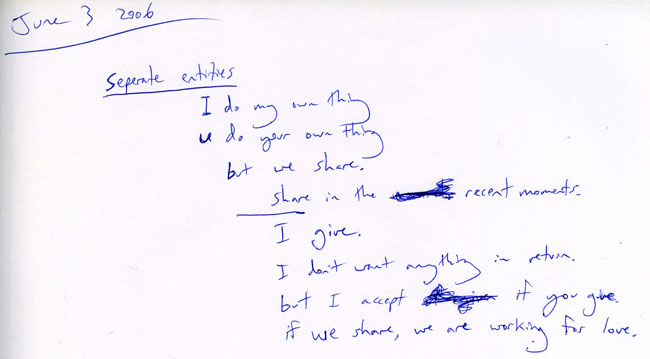 June 3 2006
Seperate entities
I do my own thing
u do your own thing
but we share.
share in the recent moments.
I give.
I don't want anything in return.
but I accept if you give.
if we share, we are working for love.